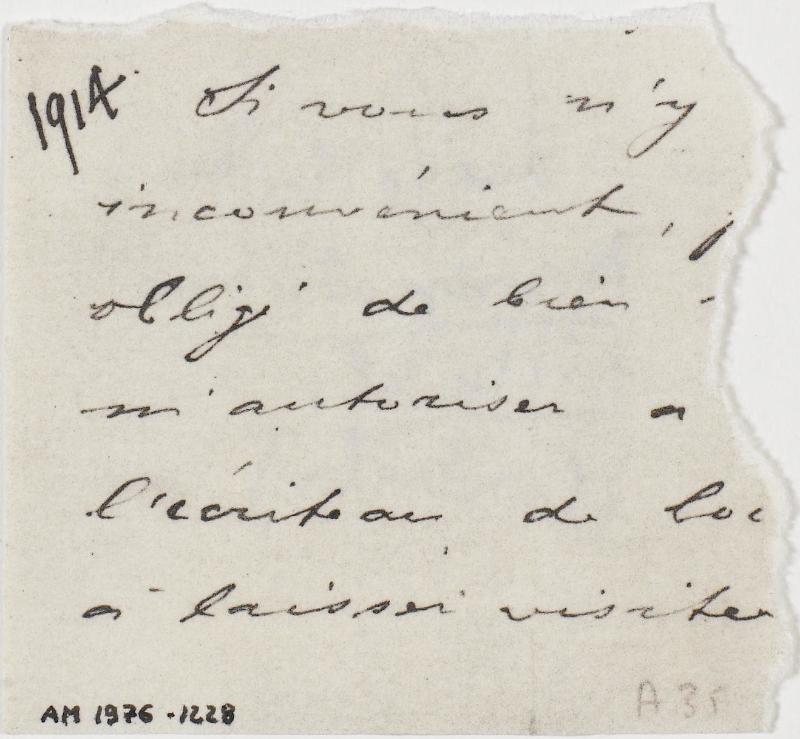 1914 Si vous n'y
inconvénient,
obligé de bien
m'autoriser a
l'écriteau de loc
à laisser visiter
AM 1976-1228
A 35